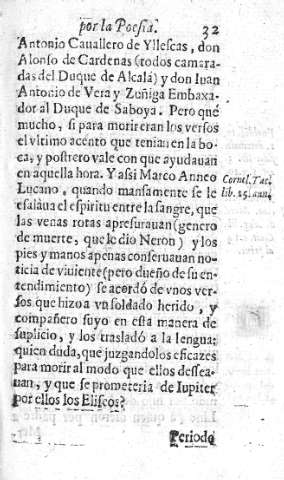 por la Poesia. 32
Antonio Cauallero de Yllescas, don
Alonso de Cardenas (todos camara-
das del Duque de Alcalá) y don Iuan
Antonio de Vera y Zuñiga Embaxa-
dor al Duque de Saboya. Pero què
mucho, si para morir eran los versos
el vltimo acento que tenian en la bo-
ca, y postrero vale con que ayudauan
en aquella hora. Y assi Marco Anneo
Lucano, quando mansamente se le
exalàua el espiritu entre la sangre, que
las venas rotas apresurauan (genero
de muerte, que le dio Neron) y los
pies y manos apenas conseruauan no-
ticia de viuiente (pero dueño de su en-
tendimiento) se acordó de vnos ver-
sos que hizo a vn soldado herido, y
compañero suyo en esta manera de
suplicio, y los trasladò a la lengua:
quien duda, que juzgandolos eficazes
para morir al modo que ellos dessea-
uan, y que se prometeria de Iupiter
por ellos los Eliseos?
Cornel. Tac.
lib. 15. ann.
Periodo